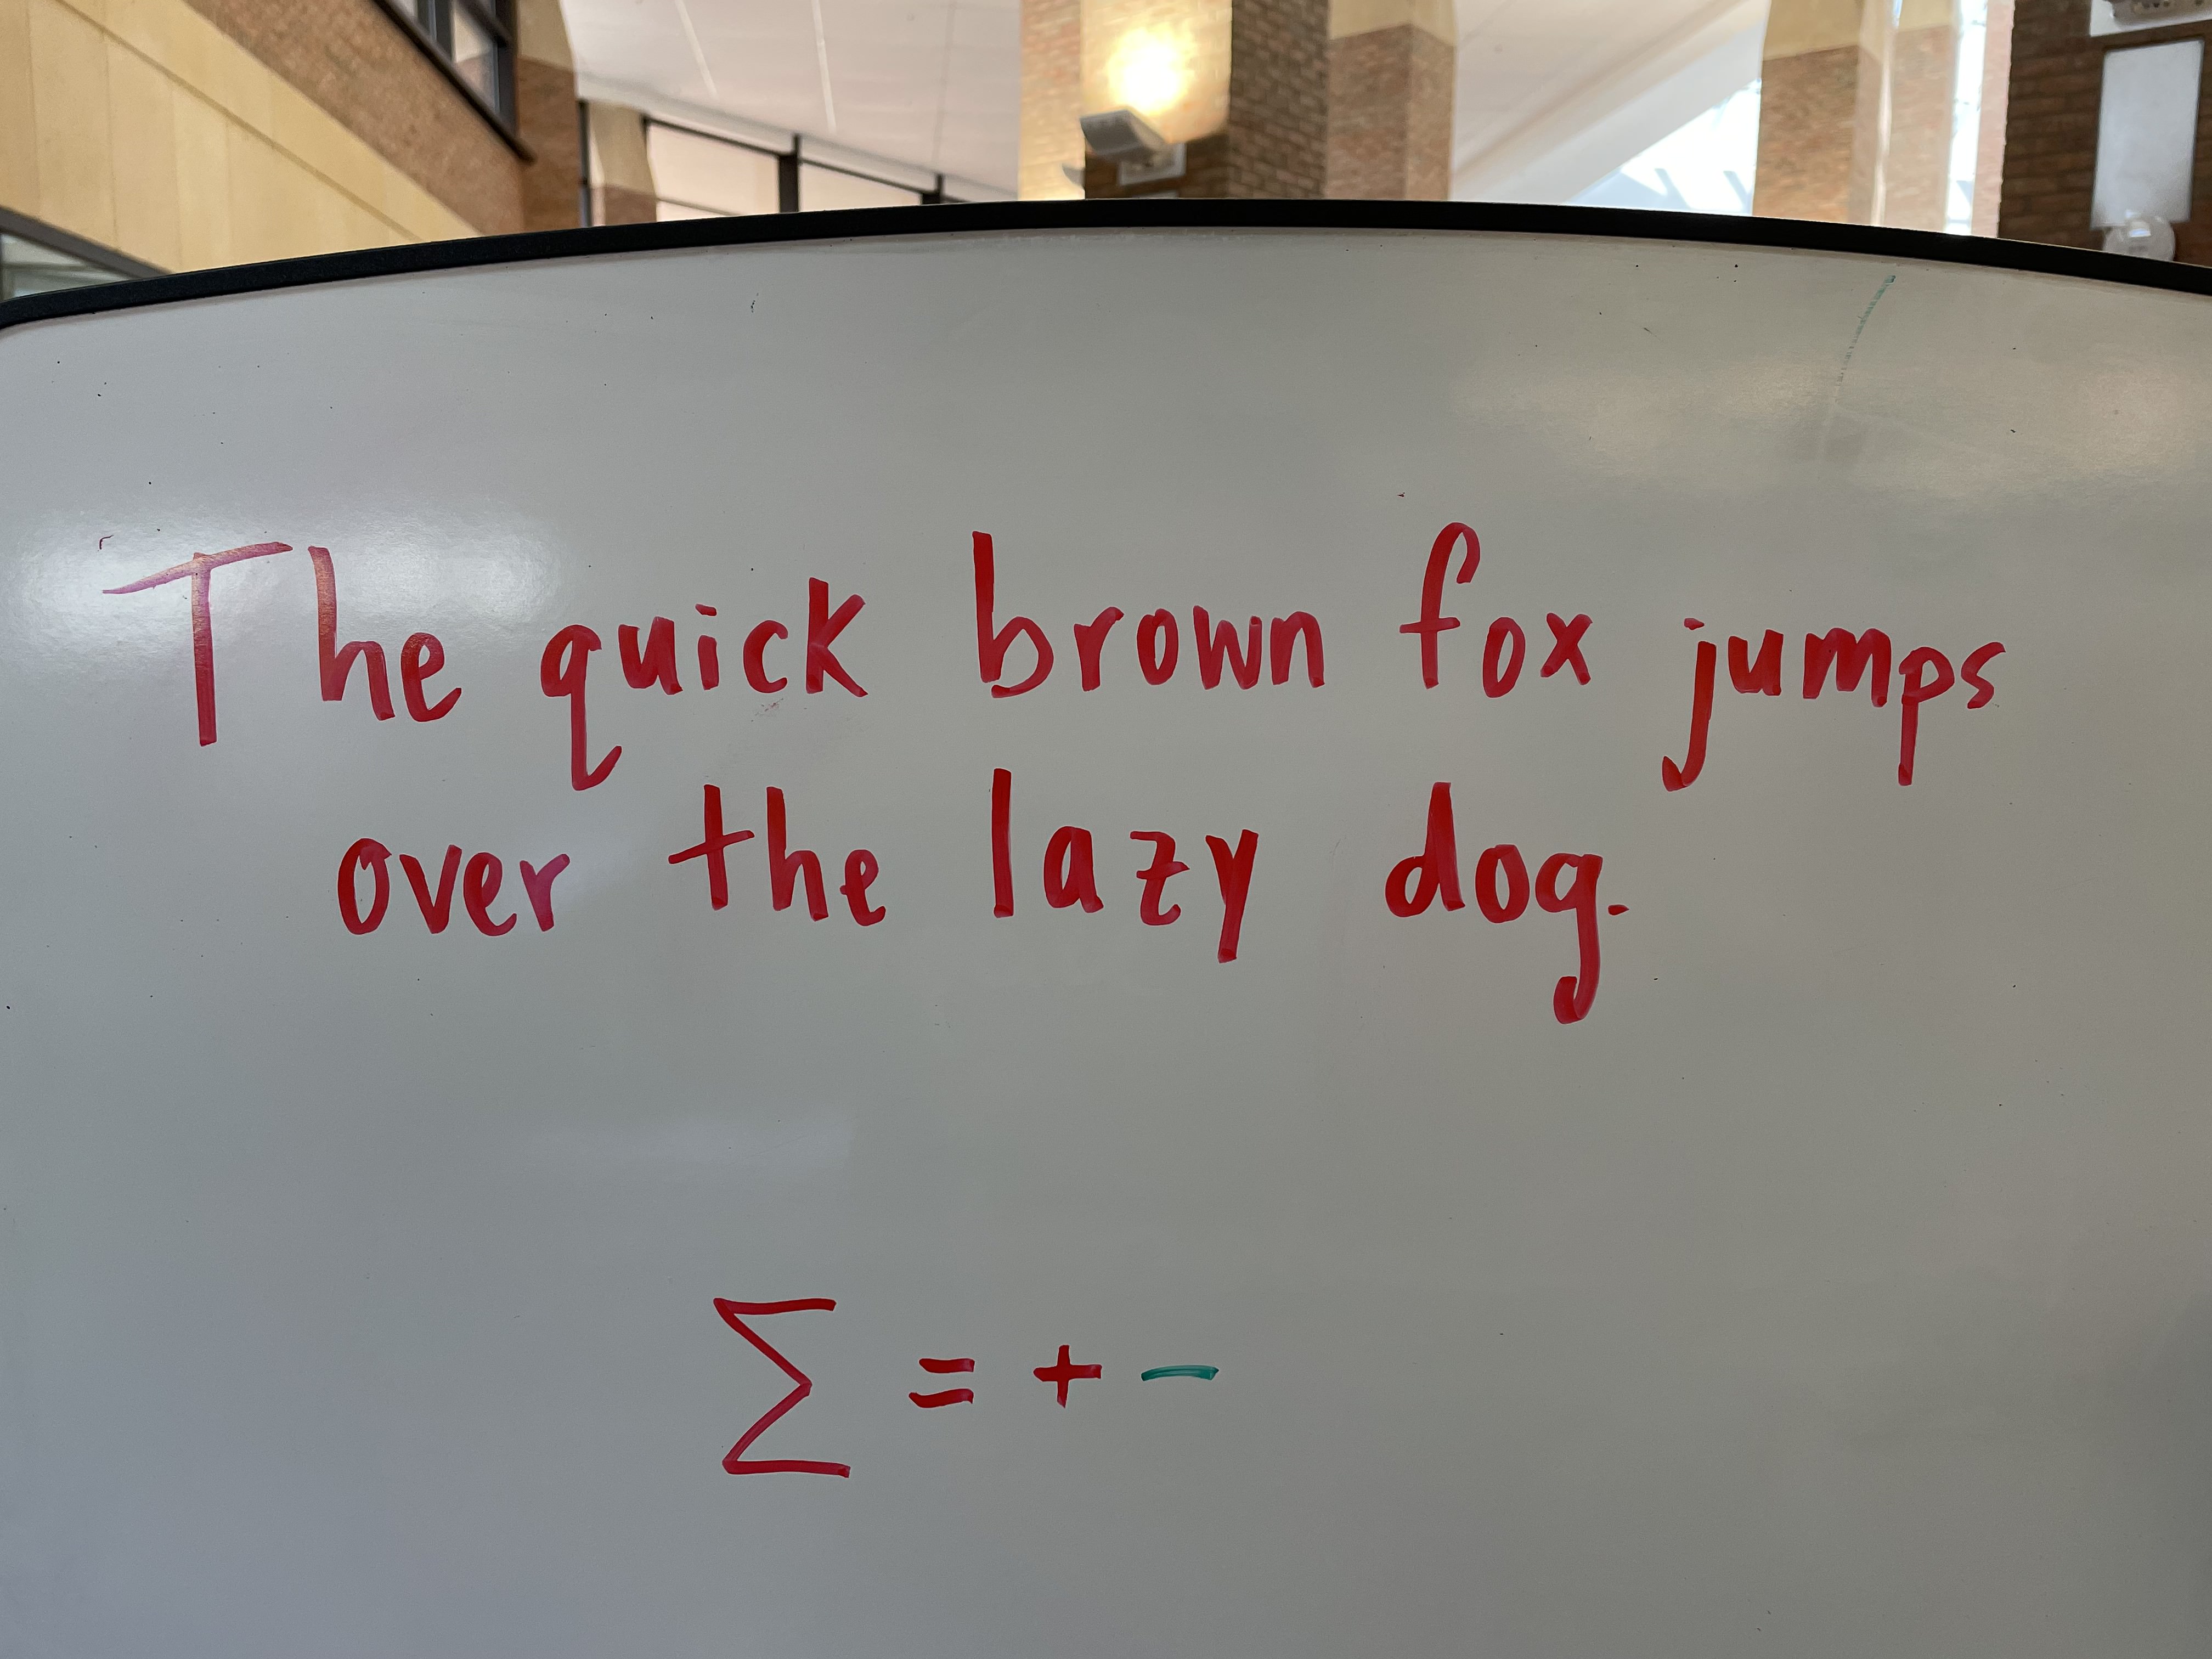 The quick brown fox jumps
over the lazy dog.
∑ = + −